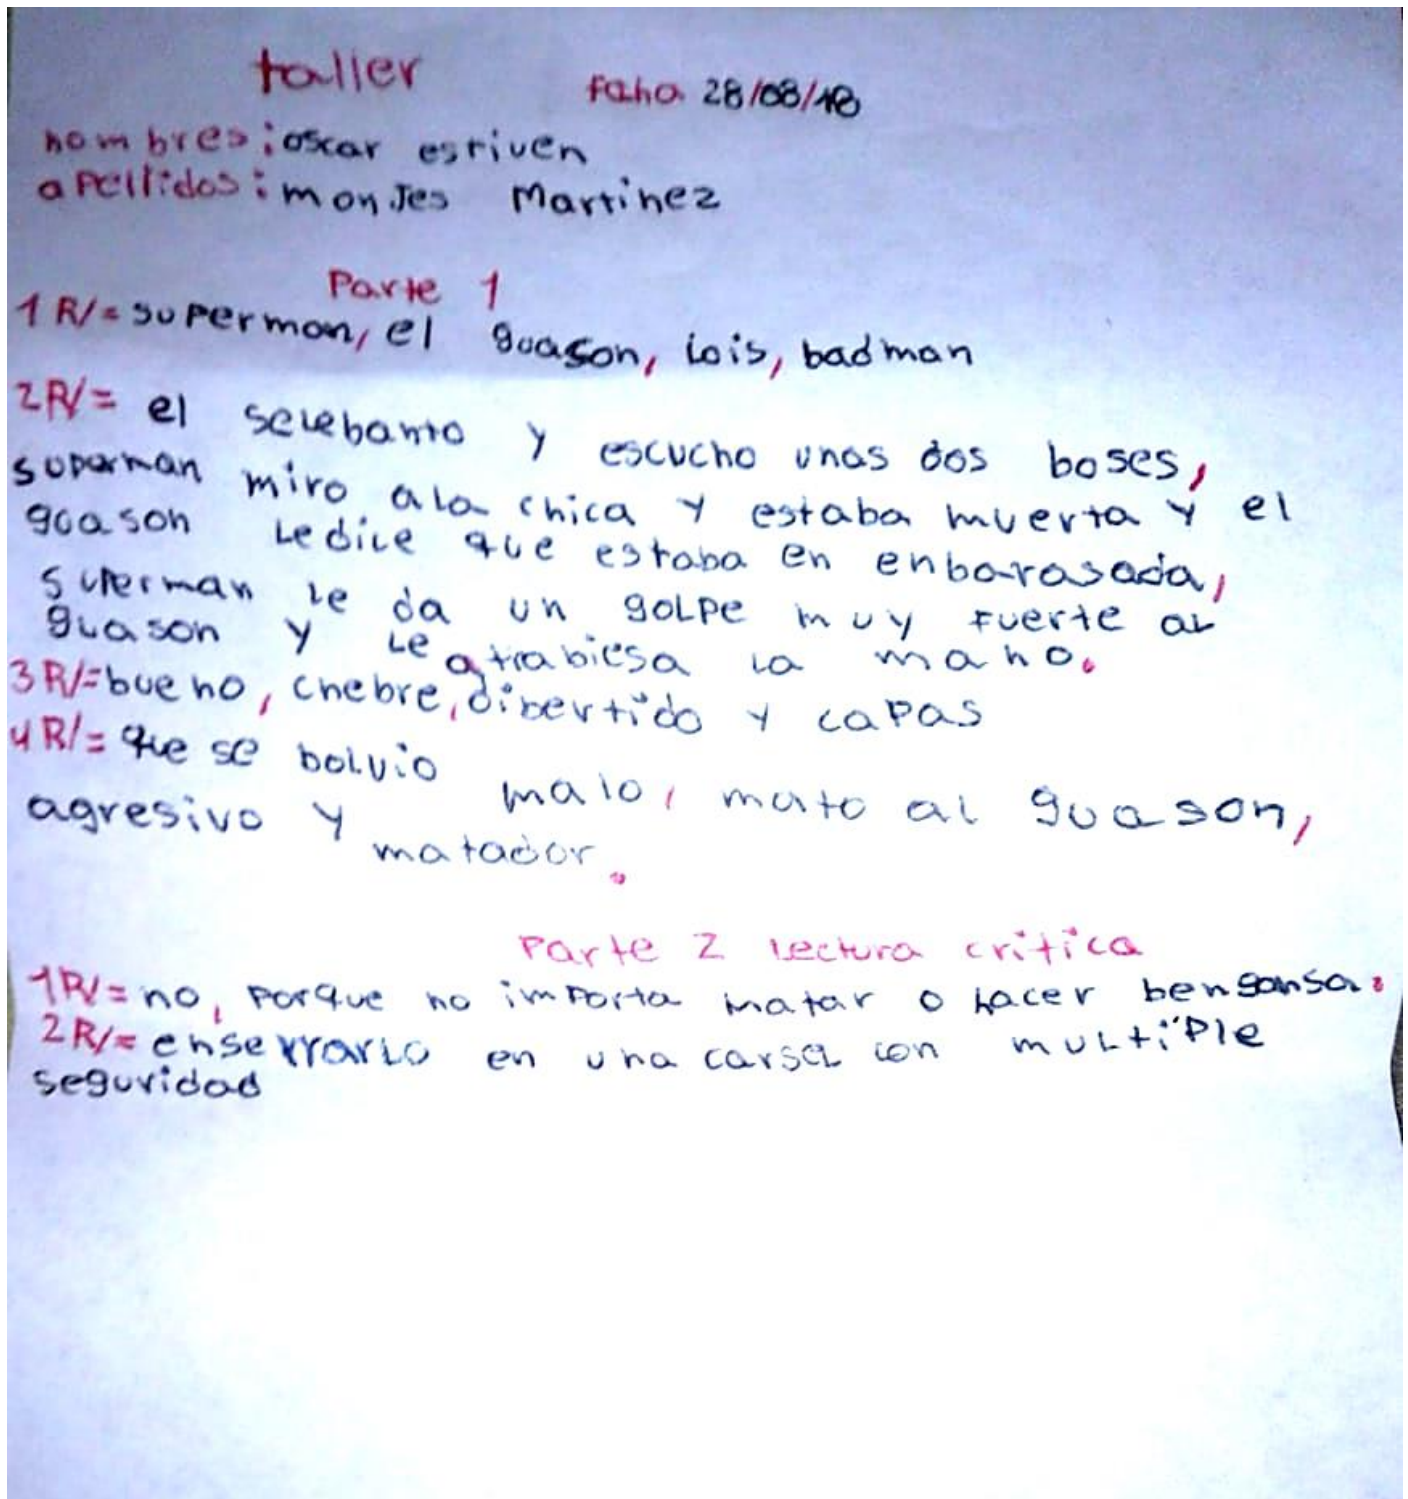 taller faha 28/08/18
nombres: oscar estiven
apellidos: montes Martinez
Parte 1
1 R/= superman, el guason, lois, badman
2R/= el selebanto y escucho unas dos boses,
superman miro ala chica y estaba muerta y el
guason ledice que estaba en enbarasada,
superman le da un golpe muy fuerte al
guason y le atrabiesa la mano.
3R/= bueno, chebre, dibertido y capas
4R/= que se bolvio malo, mato al guason,
agresivo y matador.
Parte 2 lectura critica
1R/= no, porque no importa matar o hacer bengansa.
2R/= enserrarlo en una carsel con multiple
seguridad